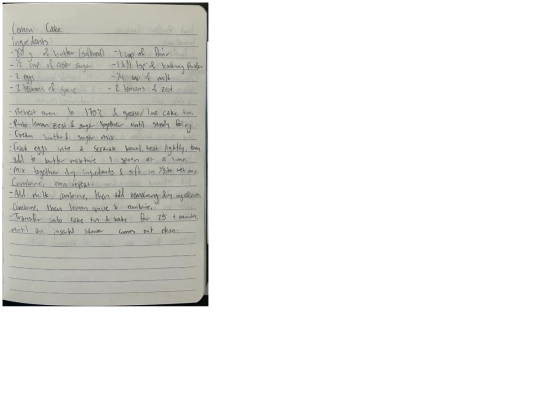 Lemon Cake
Ingredients:
- g of butter (softened) - 1 cup of flour
- 1/2 cup of caster sugar - 1 1/2 tsp of baking powder
- 2 eggs - 1/4 cup of milk
- 2 lemons of juice - 2 lemons of zest
- Preheat oven to 170°C & grease/line cake tin.
- Rub lemon zest & sugar together until
- Cream butter & sugar mix.
- Crack eggs into a separate bowl, beat lightly, then
add to butter mixture 1 spoon at a time.
- Mix together dry ingredients & sift in
Combine, then repeat.
- Add milk, combine, then add remaining dry ingredients
combine, then lemon juice & combine.
- Transfer into cake tin & bake for 25 + minutes,
until an inserted skewer comes out clean.